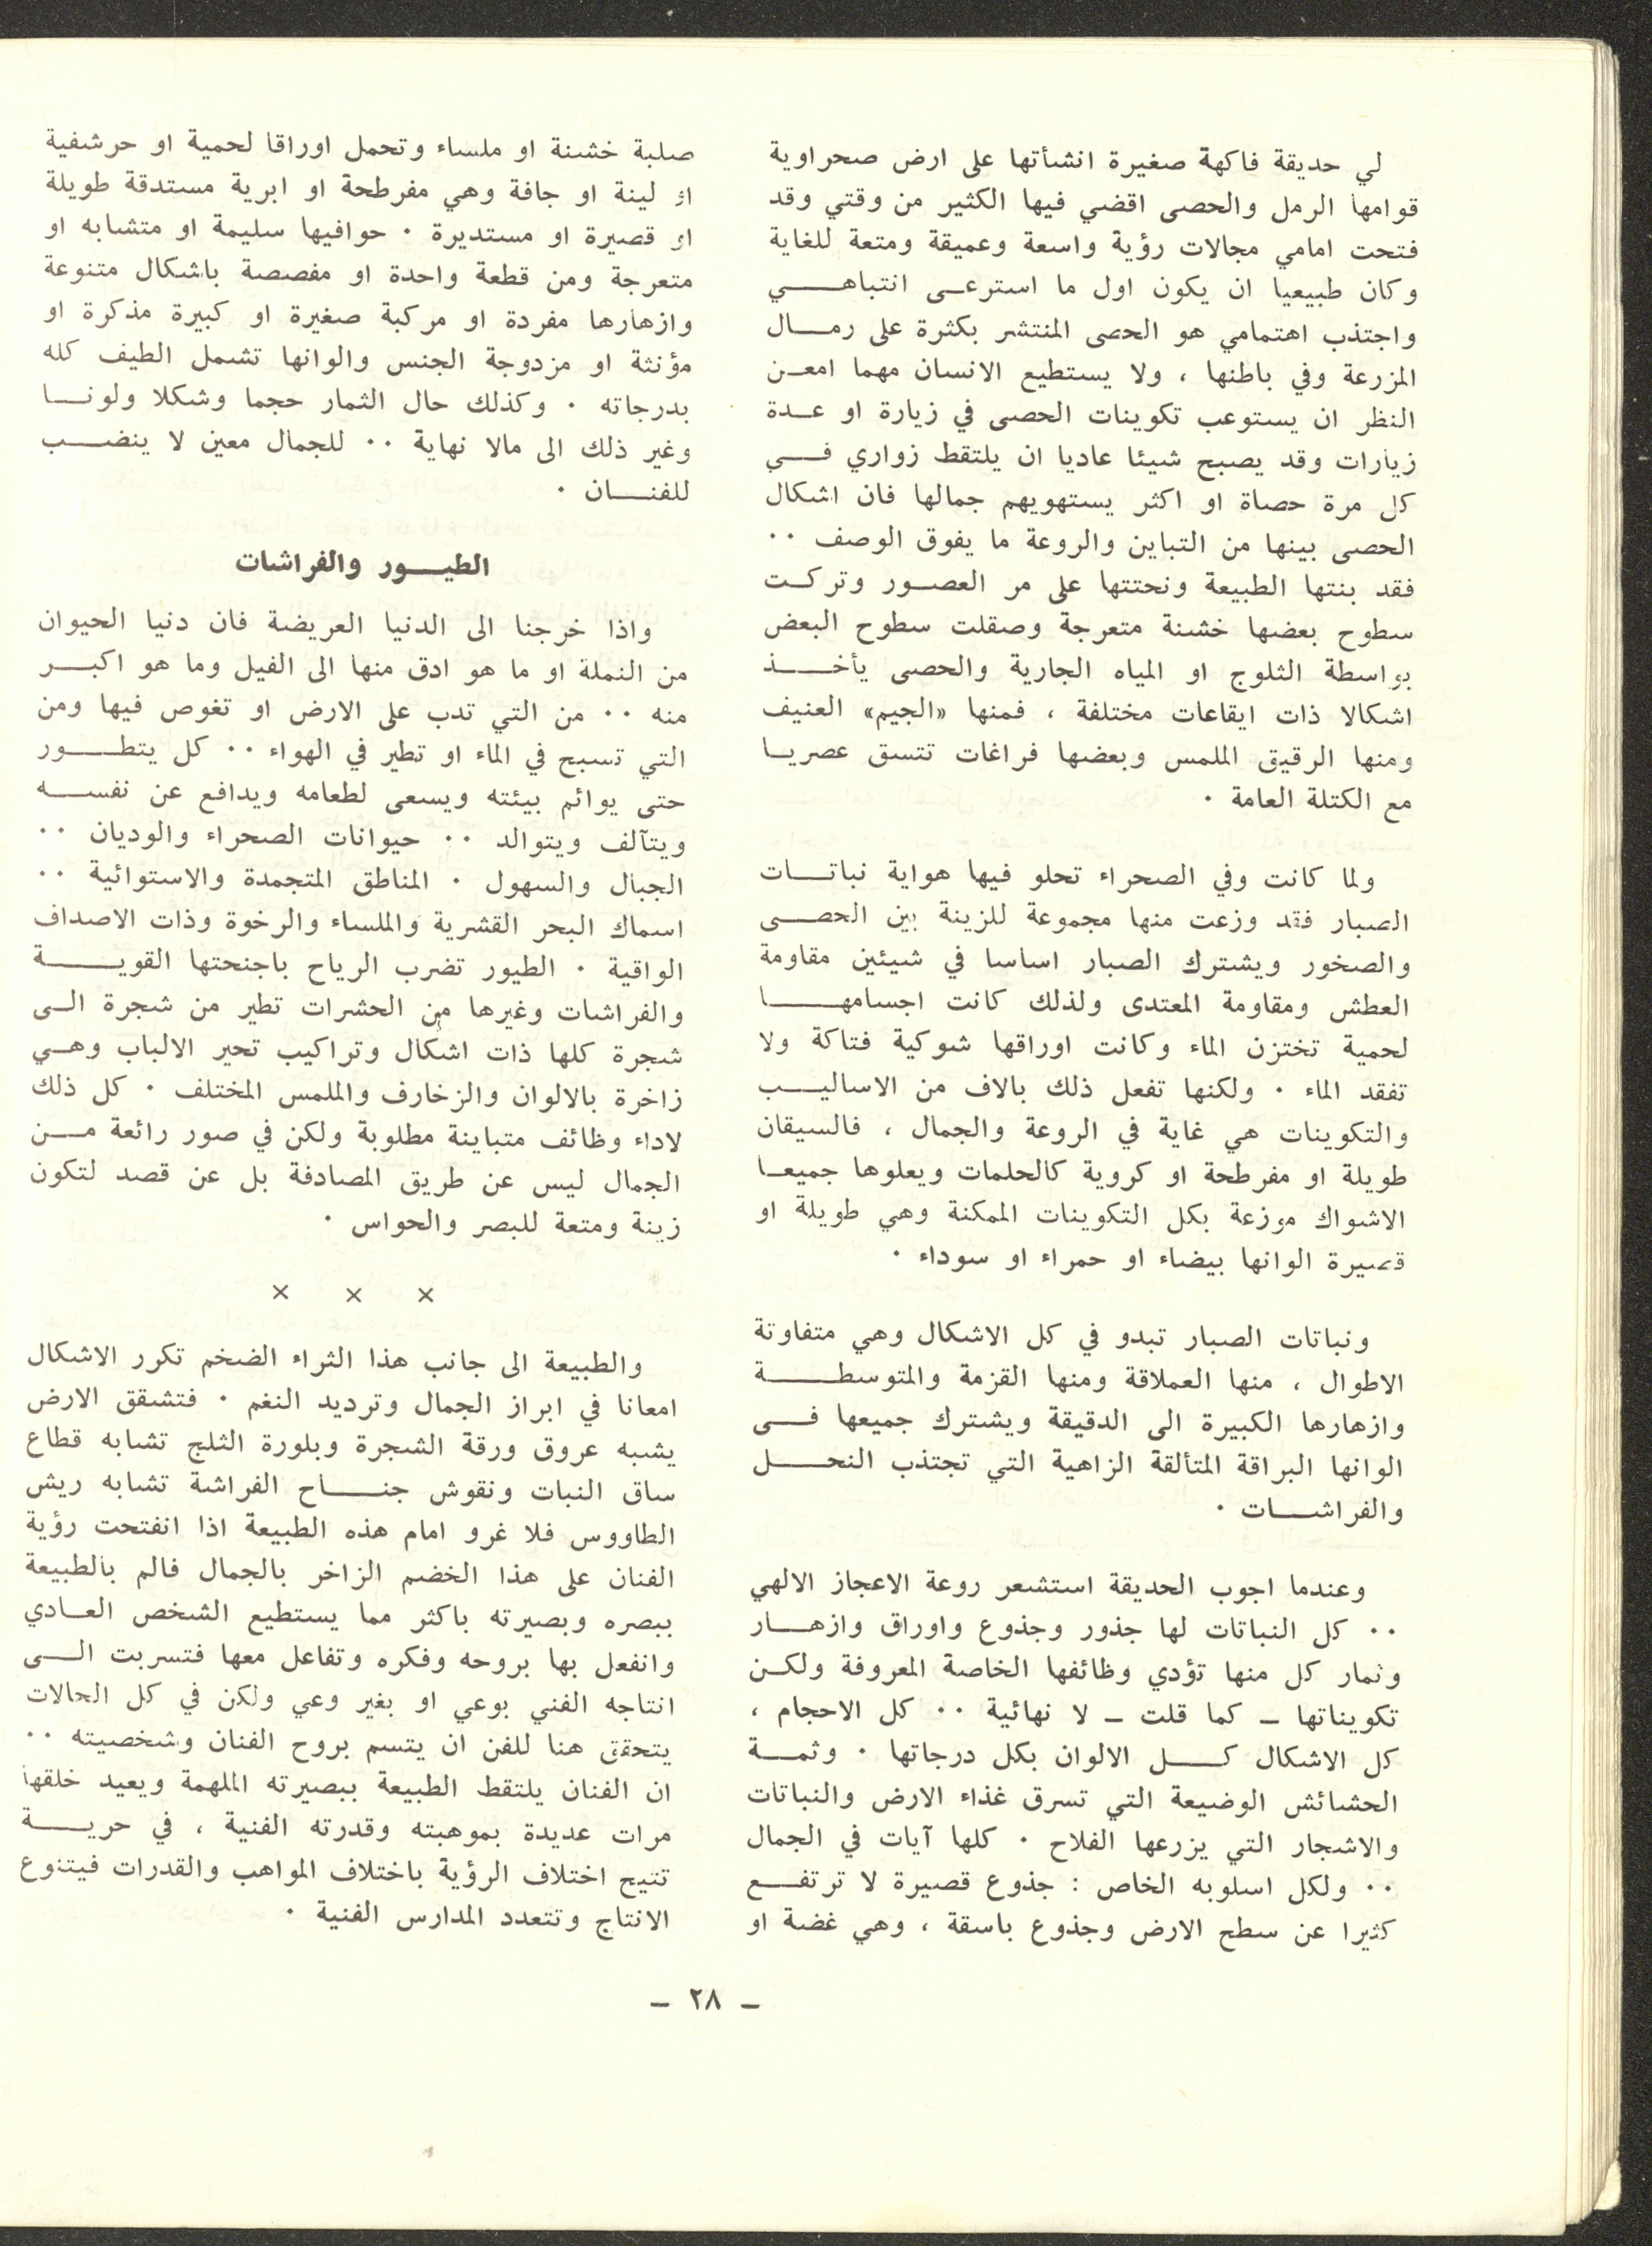 لي حديقة فاكهة صغيرة انشأتها على ارض صحراوية
قوامها الرمل والحصى اقضي فيها الكثير من وقتي وقد
فتحت امامي مجالات رؤية واسعة وعميقة ومتعة للغاية
وكان طبيعيا ان يكون اول ما استرعى انتباهي
واجتذب اهتمامي هو الحصى المنتشر بكثرة على رمال
المزرعة وفي باطنها ، ولا يستطيع الانسان مهما امعن
النظر ان يستوعب تكوينات الحصى في زيارة او عدة
زيارات وقد يصبح شيئا عاديا ان يلتقط زواري في
كل مرة حصاة او اكثر يستهويهم جمالها فان اشكال
الحصى بينها من التباين والروعة ما يفوق الوصف ..
فقد بنتها الطبيعة ونحتتها على مر العصور وتركت
سطوح بعضها خشنة متعرجة وصقلت سطوح البعض
بواسطة الثلوج او المياه الجارية والحصى يأخذ
اشكالا ذات ايقاعات مختلفة ، فمنها «الجيم» العنيف
ومنها الرقيق الملمس وبعضها فراغات تتسق عصريا
مع الكتلة العامة .
ولما كانت وفي الصحراء تحلو فيها هواية نباتات
الصبار فقد وزعت منها مجموعة للزينة بين الحصى
والصخور ويشترك الصبار اساسا في شيئين مقاومة
العطش ومقاومة المعتدى ولذلك كانت اجسامها
لحمية تختزن الماء وكانت اوراقها شوكية فتاكة ولا
تفقد الماء . ولكنها تفعل ذلك بالاف من الاساليب
والتكوينات هي غاية في الروعة والجمال ، فالسيقان
طويلة او مفرطحة او كروية كالحلمات ويعلوها جميعا
الاشواك موزعة بكل التكوينات الممكنة وهي طويلة او
قصيرة الوانها بيضاء او حمراء او سوداء .
ونباتات الصبار تبدو في كل الاشكال وهي متفاوتة
الاطوال ، منها العملاقة ومنها القزمة والمتوسطة
وازهارها الكبيرة الى الدقيقة ويشترك جميعها فى
الوانها البراقة المتألقة الزاهية التي تجتذب النحل
والفراشات .
وعندما اجوب الحديقة استشعر روعة الاعجاز الالهي
.. كل النباتات لها جذور وجذوع واوراق وازهار
وثمار كل منها تؤدي وظائفها الخاصة المعروفة ولكن
تكويناتها – كما قلت – لا نهائية .. كل الاحجام ،
كل الاشكال كل الالوان بكل درجاتها . وثمة
الحشائش الوضيعة التي تسرق غذاء الارض والنباتات
والاشجار التي يزرعها الفلاح . كلها آيات في الجمال
.. ولكل اسلوبه الخاص : جذوع قصيرة لا ترتفع
كثيرا عن سطح الارض وجذوع باسقة ، وهي غضة او
صلبة خشنة او ملساء وتحمل اوراقا لحمية او حرشفية
او لينة او جافة وهي مفرطحة او ابرية مستدقة طويلة
او قصيرة او مستديرة . حوافيها سليمة او متشابه او
متعرجة ومن قطعة واحدة او مفصصة باشكال متنوعة
وازهارها مفردة او مركبة صغيرة او كبيرة مذكرة او
مؤنثة او مزدوجة الجنس والوانها تشمل الطيف كله
بدرجاته . وكذلك حال الثمار حجما وشكلا ولونا
وغير ذلك الى مالا نهاية .. للجمال معين لا ينضب
للفنان .
الطيور والفراشات
واذا خرجنا الى الدنيا العريضة فان دنيا الحيوان
من النملة او ما هو ادق منها الى الفيل وما هو اكبر
منه .. من التي تدب على الارض او تغوص فيها ومن
التي تسبح في الماء او تطير في الهواء .. كل يتطور
حتى يوائم بيئته ويسعى لطعامه ويدافع عن نفسه
ويتآلف ويتوالد .. حيوانات الصحراء والوديان ..
الجبال والسهول . المناطق المتجمدة والاستوائية ..
اسماك البحر القشرية والملساء والرخوة وذات الاصداف
الواقية . الطيور تضرب الرياح باجنحتها القوية
والفراشات وغيرها من الحشرات تطير من شجرة الى
شجرة كلها ذات اشكال وتراكيب تحير الالباب وهي
زاخرة بالالوان والزخارف والملمس المختلف . كل ذلك
لاداء وظائف متباينة مطلوبة ولكن في صور رائعة من
الجمال ليس عن طريق المصادفة بل عن قصد لتكون
زينة ومتعة للبصر والحواس .
× × ×
والطبيعة الى جانب هذا الثراء الضخم تكرر الاشكال
امعانا في ابراز الجمال وترديد النغم . فتشقق الارض
يشبه عروق ورقة الشجرة وبلورة الثلج تشابه قطاع
ساق النبات ونقوش جناح الفراشة تشابه ريش
الطاووس فلا غرو امام هذه الطبيعة اذا انفتحت رؤية
الفنان على هذا الخضم الزاخر بالجمال فالم بالطبيعة
ببصره وبصيرته باكثر مما يستطيع الشخص العادي
وانفعل بها بروحه وفكره وتفاعل معها فتسربت الى
انتاجه الفني بوعي او بغير وعي ولكن في كل الحالات
يتحقق هنا للفن ان يتسم بروح الفنان وشخصيته ..
ان الفنان يلتقط الطبيعة ببصيرته الملهمة ويعيد خلقها
مرات عديدة بموهبته وقدرته الفنية ، في حرية
تتيح اختلاف الرؤية باختلاف المواهب والقدرات فيتنوع
الانتاج وتتعدد المدارس الفنية .
– ٢٨ –